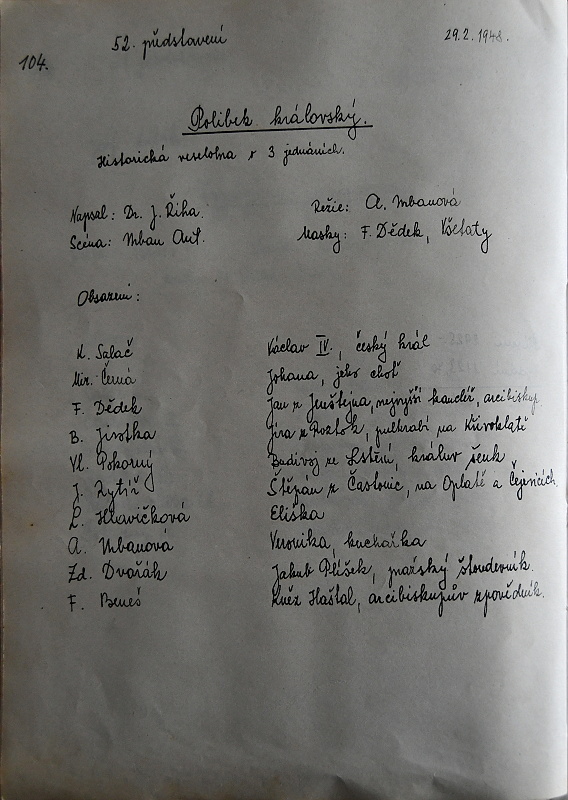 52. představení 29.2.1948.
104.
Polibek královský.
Historická veselohra v 3 jednáních.
Napsal: Dr. J. Řiha. Režie: A. Urbanová
Scéna: Urban Ant. Masky: F. Dědek, Všetaty
Obsazení:
K. Salač Václav IV., český král
Mir. Černá Johana, jeho choť
F. Dědek Jan z Jenštejna, nejvyšší kancléř, arcibiskup.
B. Jirotka Jíra z Roztok, purkrabí na Křivoklátě
Vl. Pokorný Budivoj ze Lstění, králův šenk
J. Rytíř Štěpán z Častonic, na Oplatě a Čejenicích.
L. Hlavičková Eliška
A. Urbanová Veronika, kuchařka
Zd. Dvořák Jakub Plíšek, pražský šenderník.
F. Beneš Kněz Haštal, arcibiskupův zpovědník.